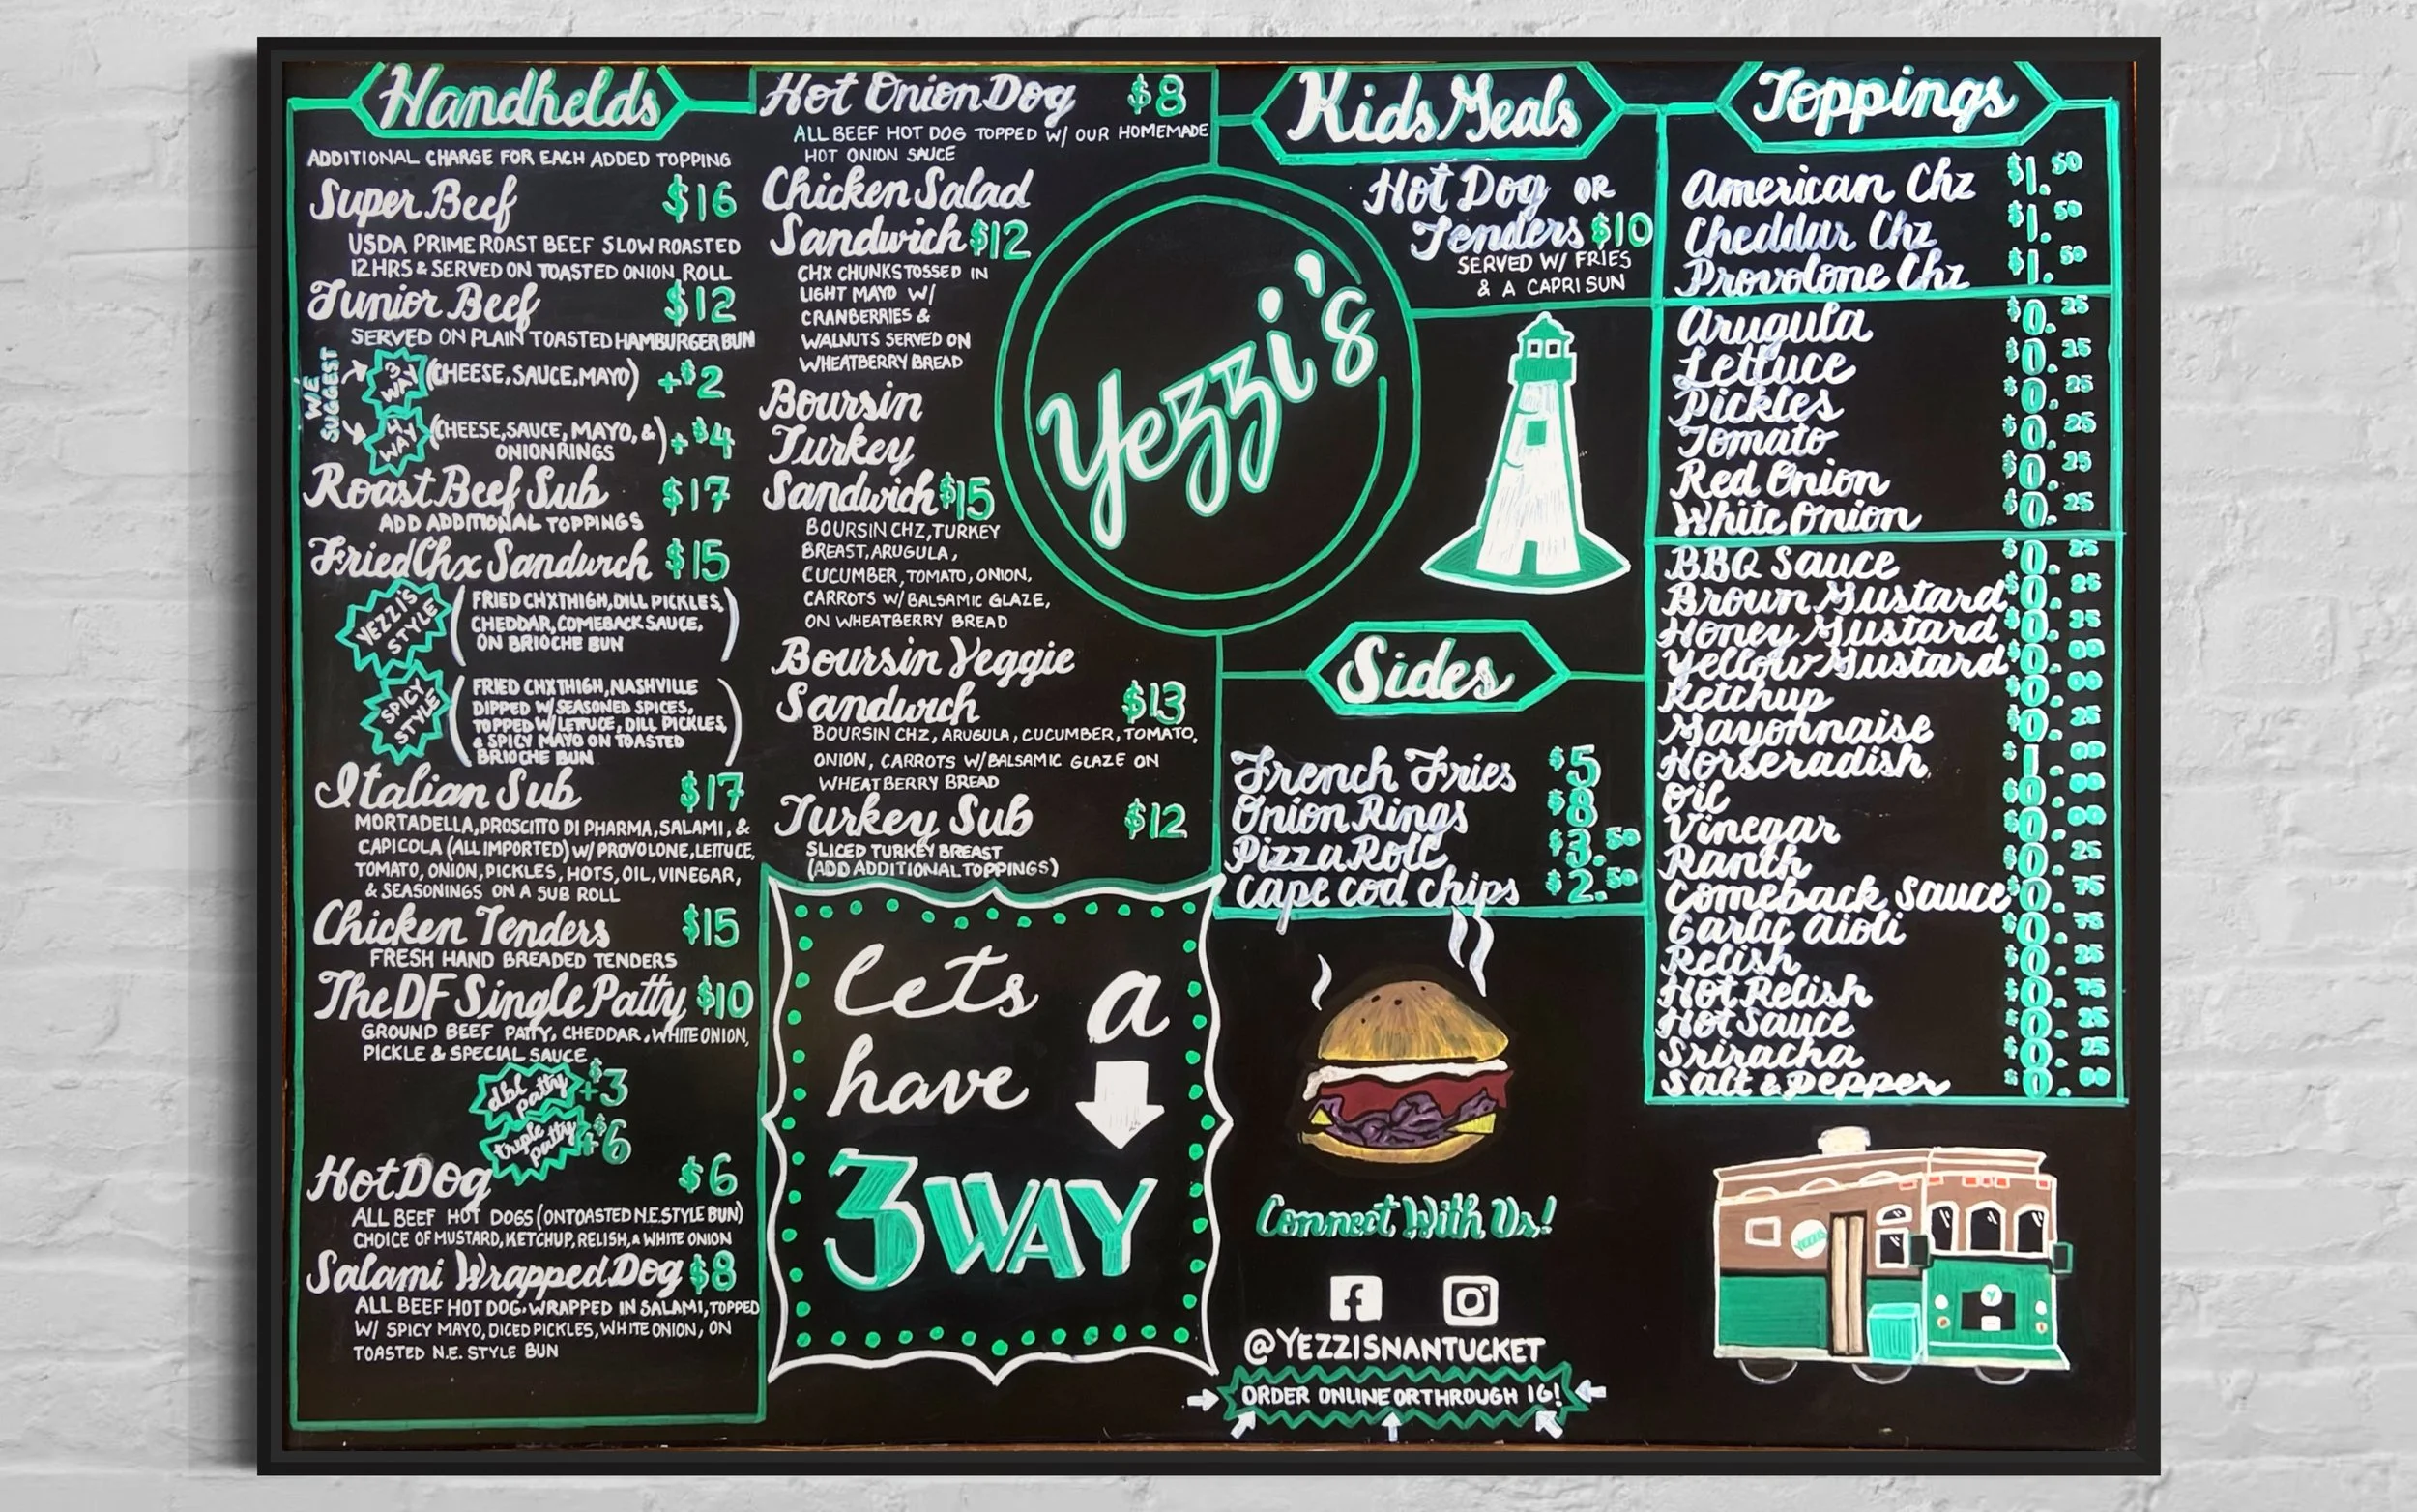 Handhelds
ADDITIONAL CHARGE FOR EACH ADDED TOPPING
Super Beef $16
USDA PRIME ROAST BEEF SLOW ROASTED
12HRS & SERVED ON TOASTED ONION ROLL
Junior Beef $12
SERVED ON PLAIN TOASTED HAMBURGER BUN
WE SUGGEST
3 WAY (CHEESE, SAUCE, MAYO) +$2
WAY (CHEESE, SAUCE, MAYO, & +$4
ONION RINGS)
Roast Beef Sub $17
ADD ADDITIONAL TOPPINGS
Fried Chx Sandwich $15
YEZZI'S STYLE
(FRIED CHX THIGH, DILL PICKLES,
CHEDDAR, COMEBACK SAUCE,
ON BRIOCHE BUN)
SPICY STYLE
(FRIED CHX THIGH, NASHVILLE
DIPPED W/ SEASONED SPICES,
TOPPED W/ LETTUCE, DILL PICKLES,
& SPICY MAYO ON TOASTED
BRIOCHE BUN)
Italian Sub $17
MORTADELLA, PROSCITTO DI PHARMA, SALAMI, &
CAPICOLA (ALL IMPORTED) W/ PROVOLONE, LETTUCE,
TOMATO, ONION, PICKLES, HOTS, OIL, VINEGAR,
& SEASONINGS ON A SUB ROLL
Chicken Tenders $15
FRESH HAND BREADED TENDERS
The DF Single Patty $10
GROUND BEEF PATTY, CHEDDAR, WHITE ONION,
PICKLE & SPECIAL SAUCE
dbl patty +$3
triple patty +$6
Hot Dog $6
ALL BEEF HOT DOGS (ON TOASTED N.E. STYLE BUN)
CHOICE OF MUSTARD, KETCHUP, RELISH, & WHITE ONION
Salami Wrapped Dog $8
ALL BEEF HOT DOG WRAPPED IN SALAMI, TOPPED
W/ SPICY MAYO, DICED PICKLES, WHITE ONION, ON
TOASTED N.E. STYLE BUN
Hot Onion Dog $8
ALL BEEF HOT DOG TOPPED W/ OUR HOMEMADE
HOT ONION SAUCE
Chicken Salad
Sandwich $12
CHX CHUNKS TOSSED IN
LIGHT MAYO W/
CRANBERRIES &
WALNUTS SERVED ON
WHEATBERRY BREAD
Boursin
Turkey
Sandwich $15
BOURSIN CHZ, TURKEY
BREAST, ARUGULA,
CUCUMBER, TOMATO, ONION,
CARROTS W/ BALSAMIC GLAZE,
ON WHEATBERRY BREAD
Boursin Veggie
Sandwich $13
BOURSIN CHZ, ARUGULA, CUCUMBER, TOMATO,
ONION, CARROTS W/ BALSAMIC GLAZE ON
WHEATBERRY BREAD
Turkey Sub $12
SLICED TURKEY BREAST
(ADD ADDITIONAL TOPPINGS)
lets
have
a
3WAY
Yezzi's
Kids Meals
Hot Dog OR
Tenders $10
SERVED W/ FRIES
& A CAPRI SUN
Sides
French Fries $5
Onion Rings $8
Pizza Roll $3.50
Cape cod chips $2.50
Connect With Us!
@YEZZISNANTUCKET
ORDER ONLINE OR THROUGH IG!
Toppings
American Chz $1.50
Cheddar Chz $1.50
Provolone Chz $1.50
Arugula $0.25
Lettuce $0.25
Pickles $0.25
Tomato $0.25
Red Onion $0.25
White Onion $0.25
BBQ Sauce $0.25
Brown Mustard $0.25
Honey Mustard $0.25
Yellow Mustard $0.00
Ketchup $0.00
Mayonnaise $0.25
Horseradish $1.00
Oil $0.00
Vinegar $0.00
Ranch $0.25
Comeback Sauce $0.75
Garlic Aioli $0.75
Relish $0.25
Hot Relish $0.75
Hot Sauce $0.25
Sriracha $0.25
Salt & Pepper $0.00
YEZZI'S
Y